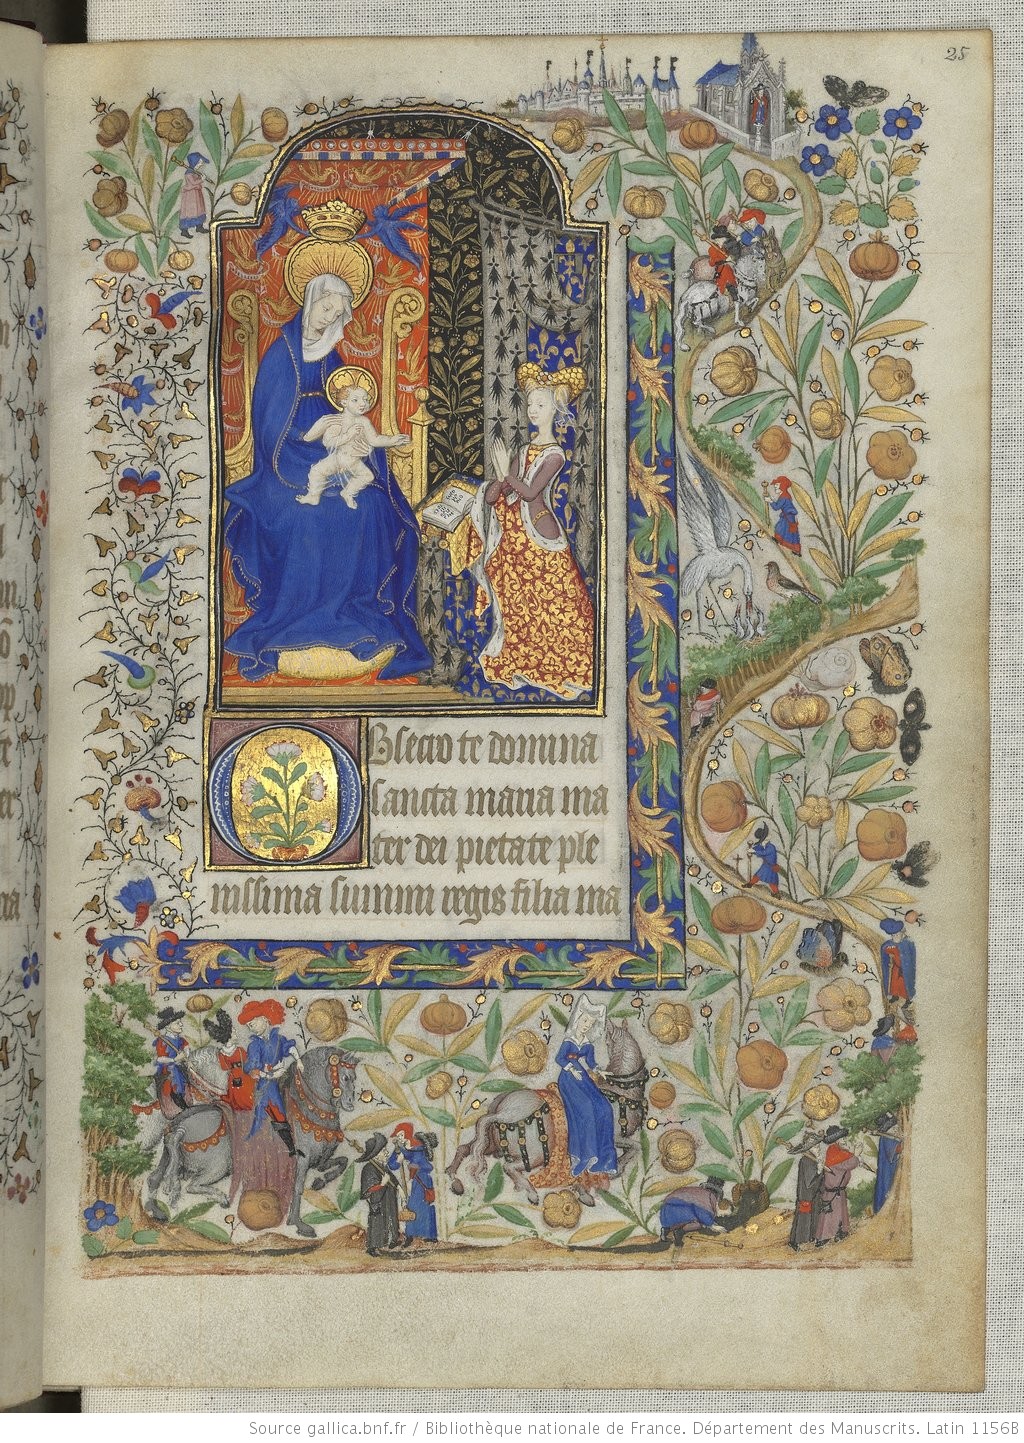 25
Obsecro te domina
sancta maria ma
ter dei pietate ple
nissima summi regis filia ma
Source gallica.bnf.fr / Bibliothèque nationale de France. Département des Manuscrits. Latin 1156B